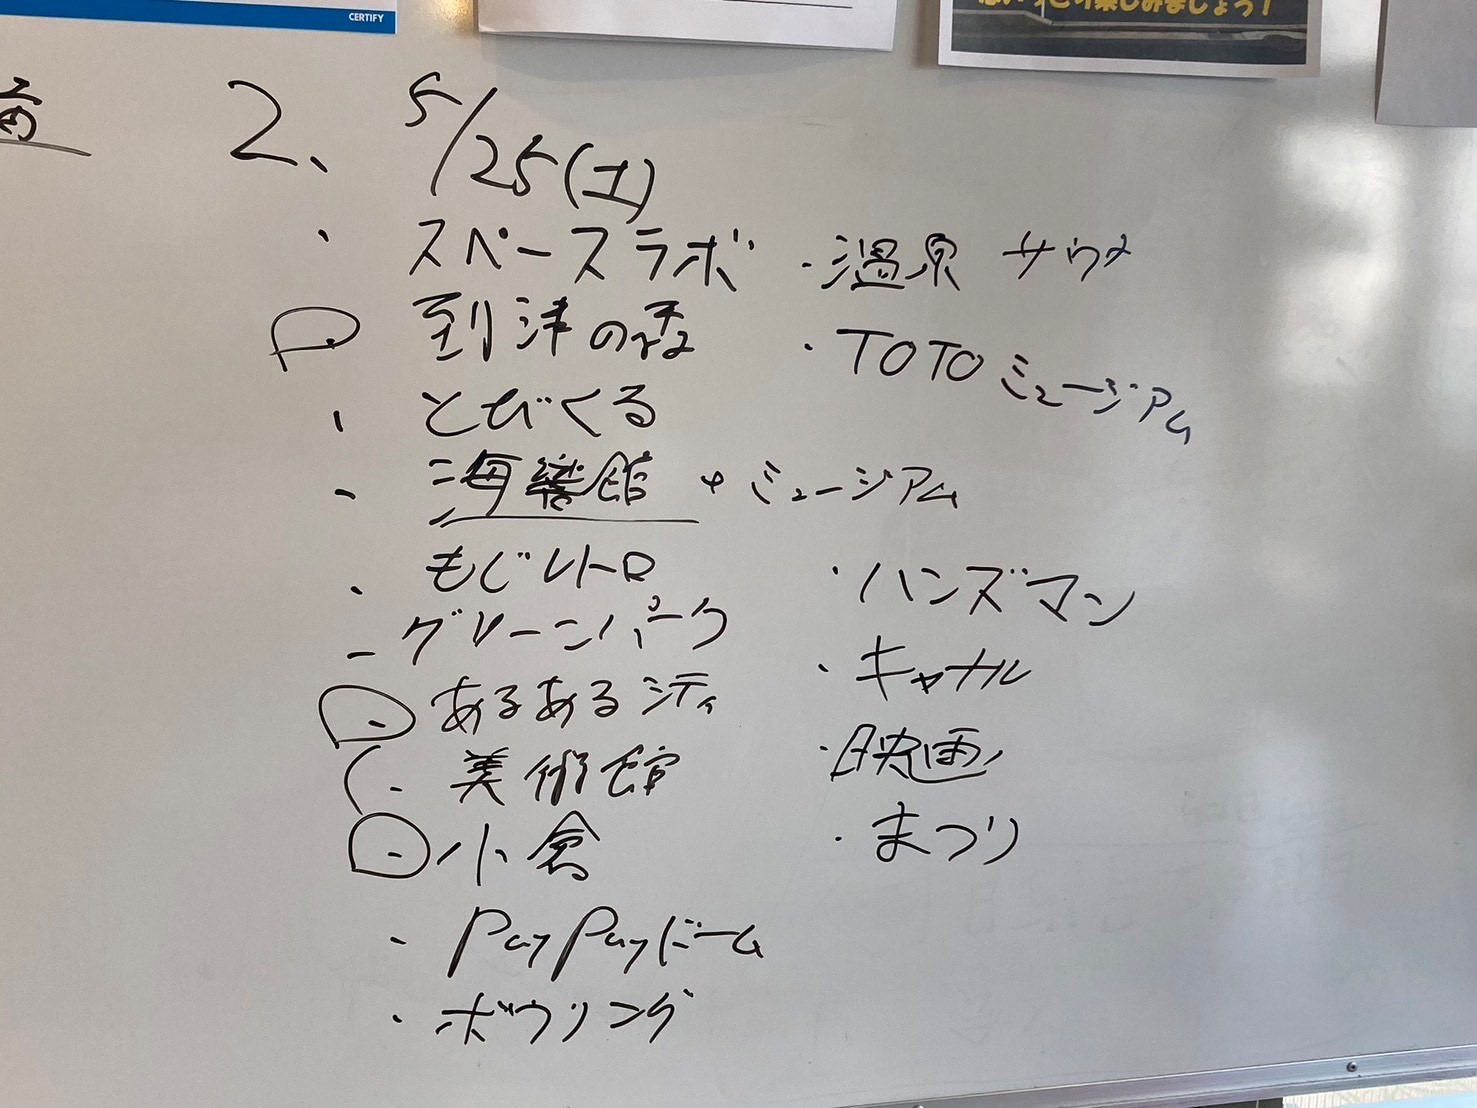 CERTIFY
楽しみましょう！
2、 5/25(土)
・ スペースラボ
・ 到津の森
・ とびくる
・ 海響館 + ミュージアム
・ もじレトロ
・ グリーンパーク
・ あるあるシティ
・ 美術館
・ 小倉
・ PayPayドーム
・ ボウリング
・温泉 サウナ
・TOTOミュージアム
・ハンズマン
・キャナル
・映画
・まつり